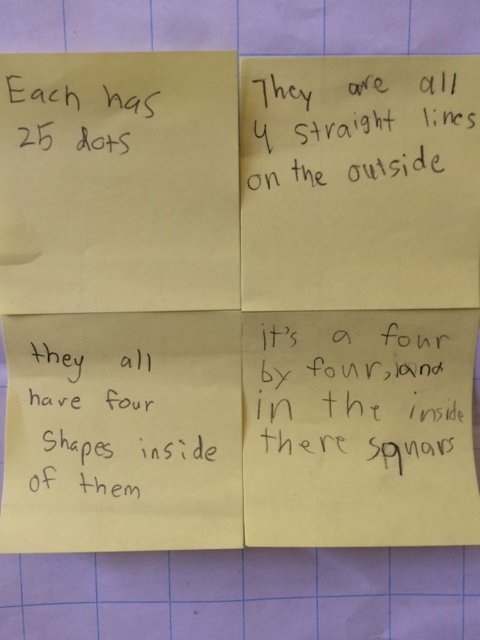 Each has
25 dots
They are all
4 straight lines
on the outside
they all
have four
Shapes inside
of them
it's a four
by four, and
in the inside
there squars